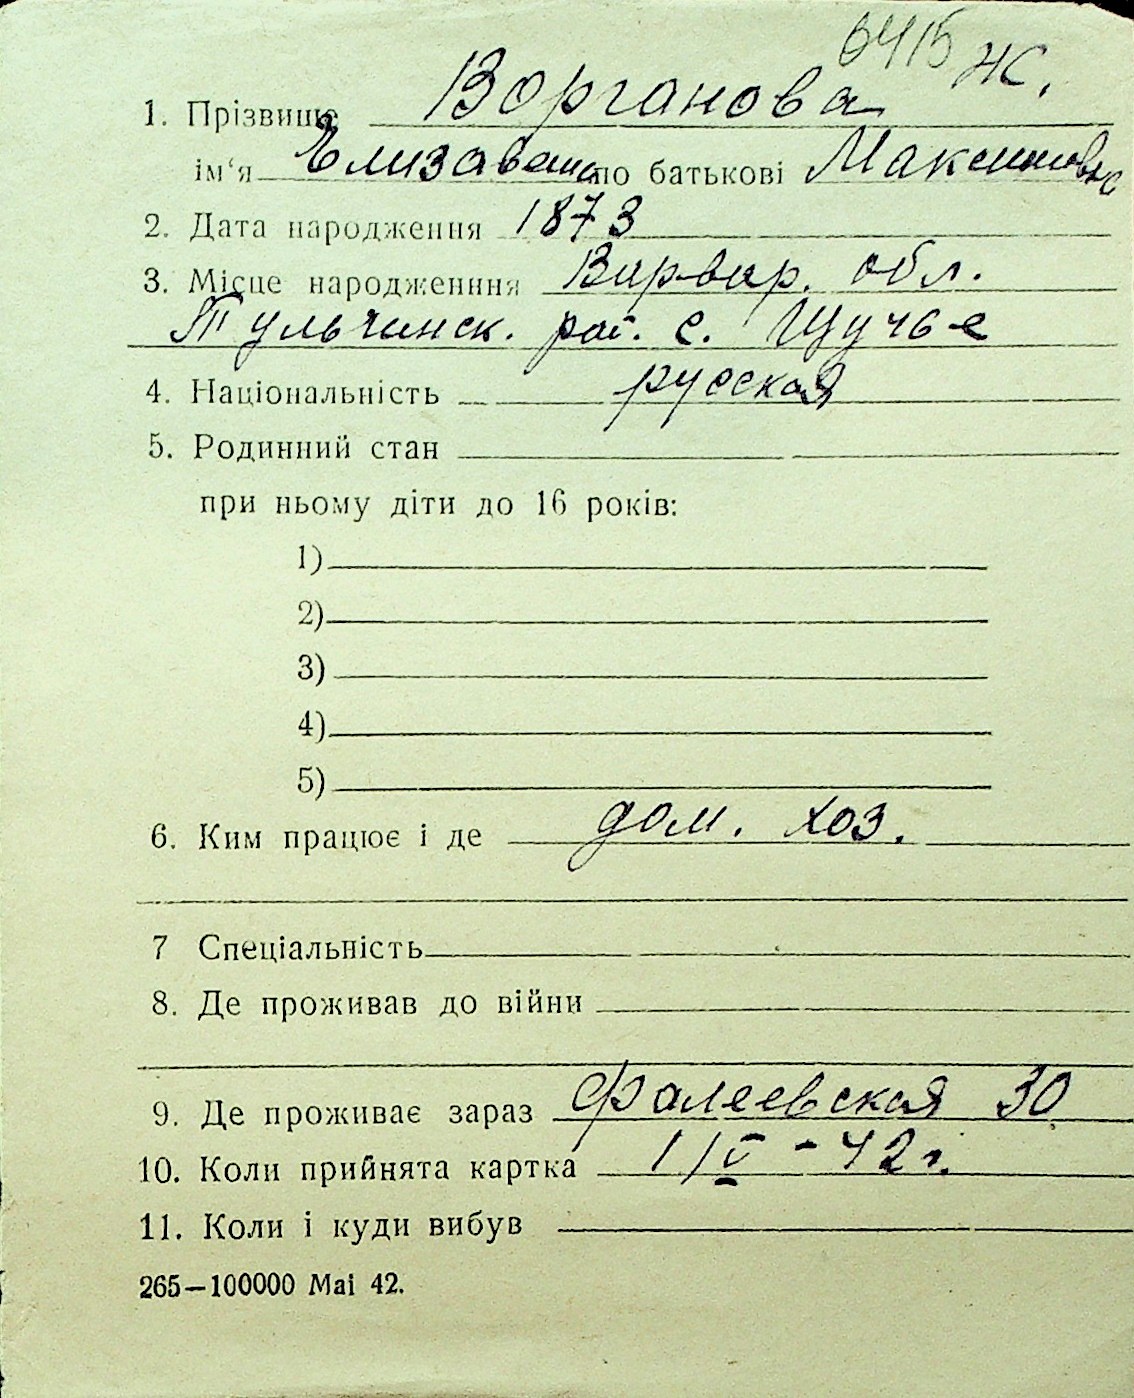 6415 Ж.
1. Прізвище Ворганова
ім‘я Елизавета по батькові Максимовн
2. Дата народження 1873
3. Місце народженння Вирвар. обл.
Тульчинск. рай. с. Щучье
4. Національність русская
5. Родинний стан
при ньому діти до 16 років:
1)
2)
3)
4)
5)
6. Ким працює і де дом. хоз.
7 Спеціальність
8. Де проживав до війни
9. Де проживає зараз Фалеевская 30
10. Коли прийнята картка 1/V - 42 г.
11. Коли і куди вибув
265—100000 Mai 42.